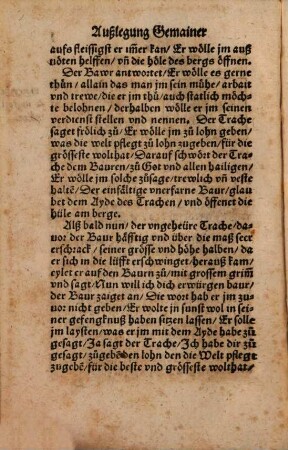 Außlegung Gemainer
aufs fleissigst er im̃er kan / Er wölle jm auß
nöten helffen / vñ die höle des bergs öffnen.
Der Bawr antwortet / Er wölle es gerne
thün / allain das man jm sein mühe / arbait
vnd trewe / die er jm thü / auch statlich möch-
te belohnen / derhalben wölle er jm seinen
verdienst stellen vnd nennen. Der Trache
saget frölich zů / Er wölle jm zů lohn geben /
was die welt pflegt zů lohn zugeben / für die
grösseste wolthat / Darauf schwört der Tra
che dem Bauren / zů Got vnd allen hailigen /
Er wölle jm solche zůsage / trewlich vñ veste
haltē / Der einfältige vnerfarne Baur / glau
bet dem Ayde des Trachen / vnd öffenet die
hüle am berge.
Alß bald nun / der vngeheüre Trache / da-
uor der Baur häfftig vnd über die maß seer
erschrack / seiner grösse vnd höhe halben / da
er sich in die lüfft erschwinget / herauß kam /
eylet er auf den Baurn zů / mit grossem grim̃
vnd sagt / Nun will ich dich erwürgen baur /
der Baur zaiget an / Die wort hab er jm zu-
uor nicht geben / Er wolte jn sunst wol in sei-
ner gefengknuß haben sitzen lassen / Er solle
jm laysten / was er jm mit dem Ayde habe zů
gesagt / Ja sagt der Trache / Jch habe dir zů
gesagt / zůgebē den lohn den die Welt pflegt
zugebē / für die beste vnd grösseste wolthat /